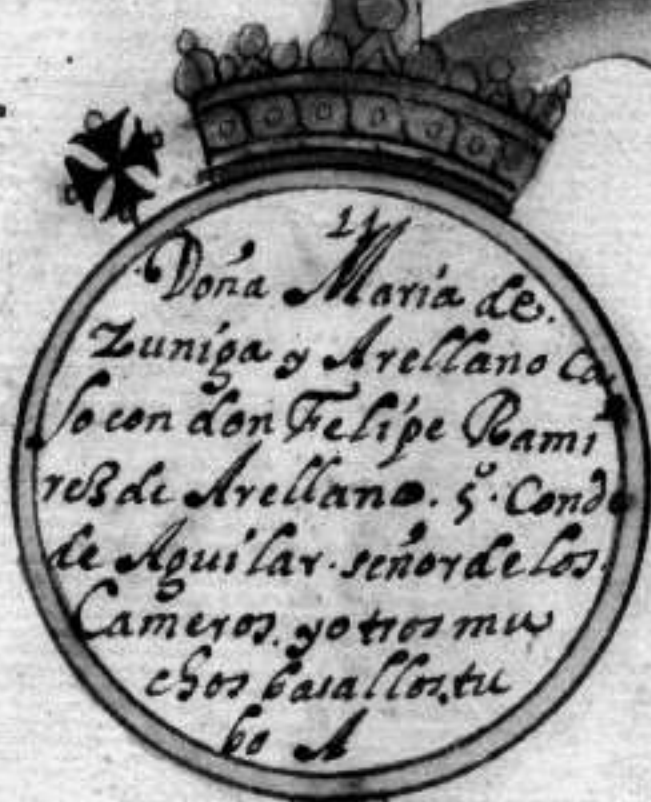 11
Doña María de.
Zuniga y Arellano ca
so con don Felipe Rami
rez de Arellano. 5º. Conde
de Aguilar. señor de los.
Cameros. y otros mu
chos basallos. tu
bo A